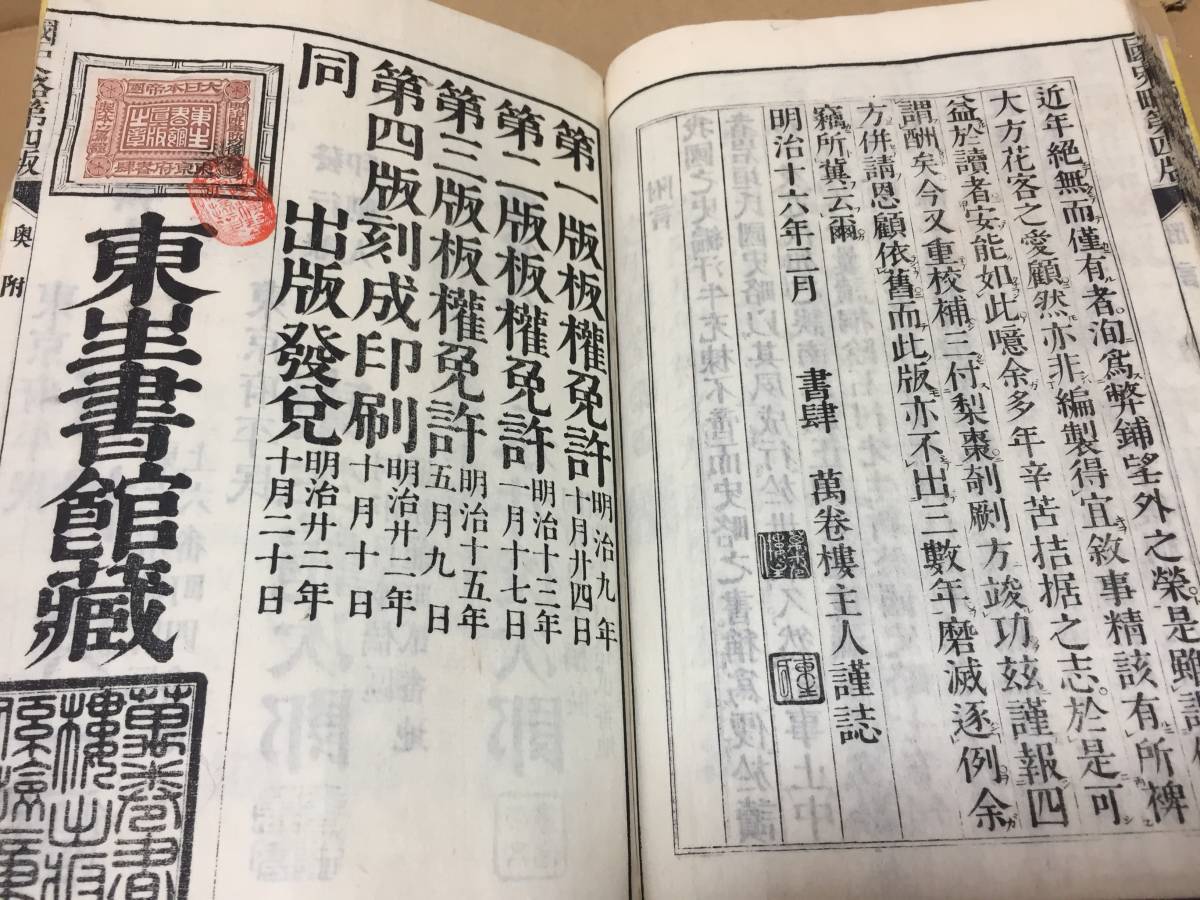 國史略第四版
近年絶無而僅有者洵爲弊鋪望外之榮是雖
大方花客之愛顧然亦非編製得宜敘事精該有所裨
益於讀者安能如此噫余多年辛苦拮据之志於是可
謂酬矣今又重校補三付梨棗剞劂方竣功玆謹報四
方併請恩顧依舊而此版亦不出三數年磨滅逐例余
竊所冀云爾
明治十六年三月 書肆 萬卷樓主人謹誌
第一版板權免許 明治九年十月廿四日
第二版板權免許 明治十三年一月十七日
第三版板權免許 明治十五年五月九日
第四版刻成印刷 明治廿二年十月十日
同 出版發兌 明治廿二年十月二十日
大日本帝國
東生
東京府書肆
東生書館藏
萬卷書
樓出版
國史略第四版
奧附